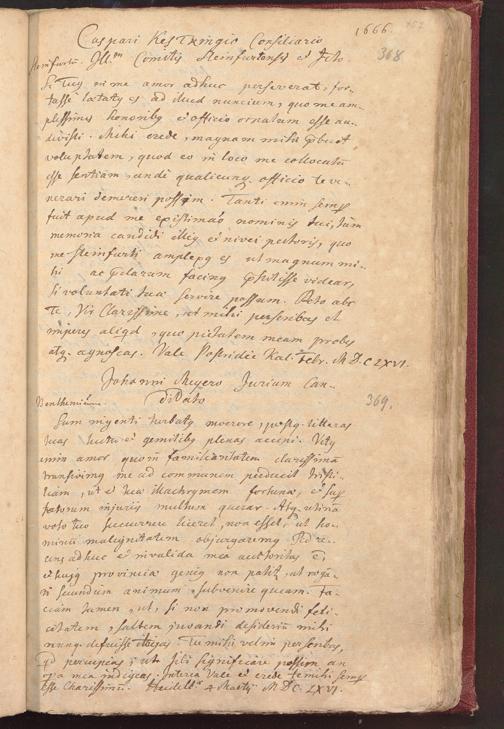 1666.
Caspari Kestringio Consiliario 368
Steinfurtum. Ill.mi Comitis Steinfurtensis et
Si tuus in me amor adhuc perseverat, for-
tasse laetatus es ad illud nuncium, quo me am-
plissimis honoribus et officio ornatum esse au-
divisti. Mihi crede, magnam mihi
voluptatem, quod eo in loco me collocatum
esse sentiam, unde qualicunque officio te ve-
nerari demereri possim. Tanti enim semper
fuit apud me existimatio nominis tui, tum
memoria candidi illius et nivei pectoris, quo
me Steinfurti amplexus es ut magnum mi-
hi ac facinus videar,
si voluntati tuae servire possum. Peto abs
te, Vir Clarissime, ut mihi perscribas et
injungas aliquid, quo pietatem meam probes
atque agnoscas. Vale Postridie Kal. Febr. M D C LXVI.
Johanni Meyero Jurium Can- 369.
Benthemium. didato
Sum ingenti turbatus moerore, postquam litteras
tuas luctu et gemitibus plenas accepi. Vetus
enim amor quom familiaritatem clarissimam
transivimus me ad communem perducit tristi-
tiam, ut et tua lachrymem fortuna, et super
injuriis multum querar. Atque utinam
voto tuo succurrere liceret, non esset, ut ho-
minum malignitatem objurgaremus. Sed re-
cens adhuc et invalida mea authoritas
et hujus provinciae genius non patitur, ut
secundum animum subvenire queam. Fa-
ciam tamen, ut, si non promovendi feli-
citatem, saltem juvandi desiderium mihi
nunquam defuisse Tu mihi velim perscribas,
quid percupias, ut Tibi significare possem an
opera mea indigeas. Interea Vale et crede te mihi semper
esse charissimum. Heidelb. 4 Martii M D C LXVI.